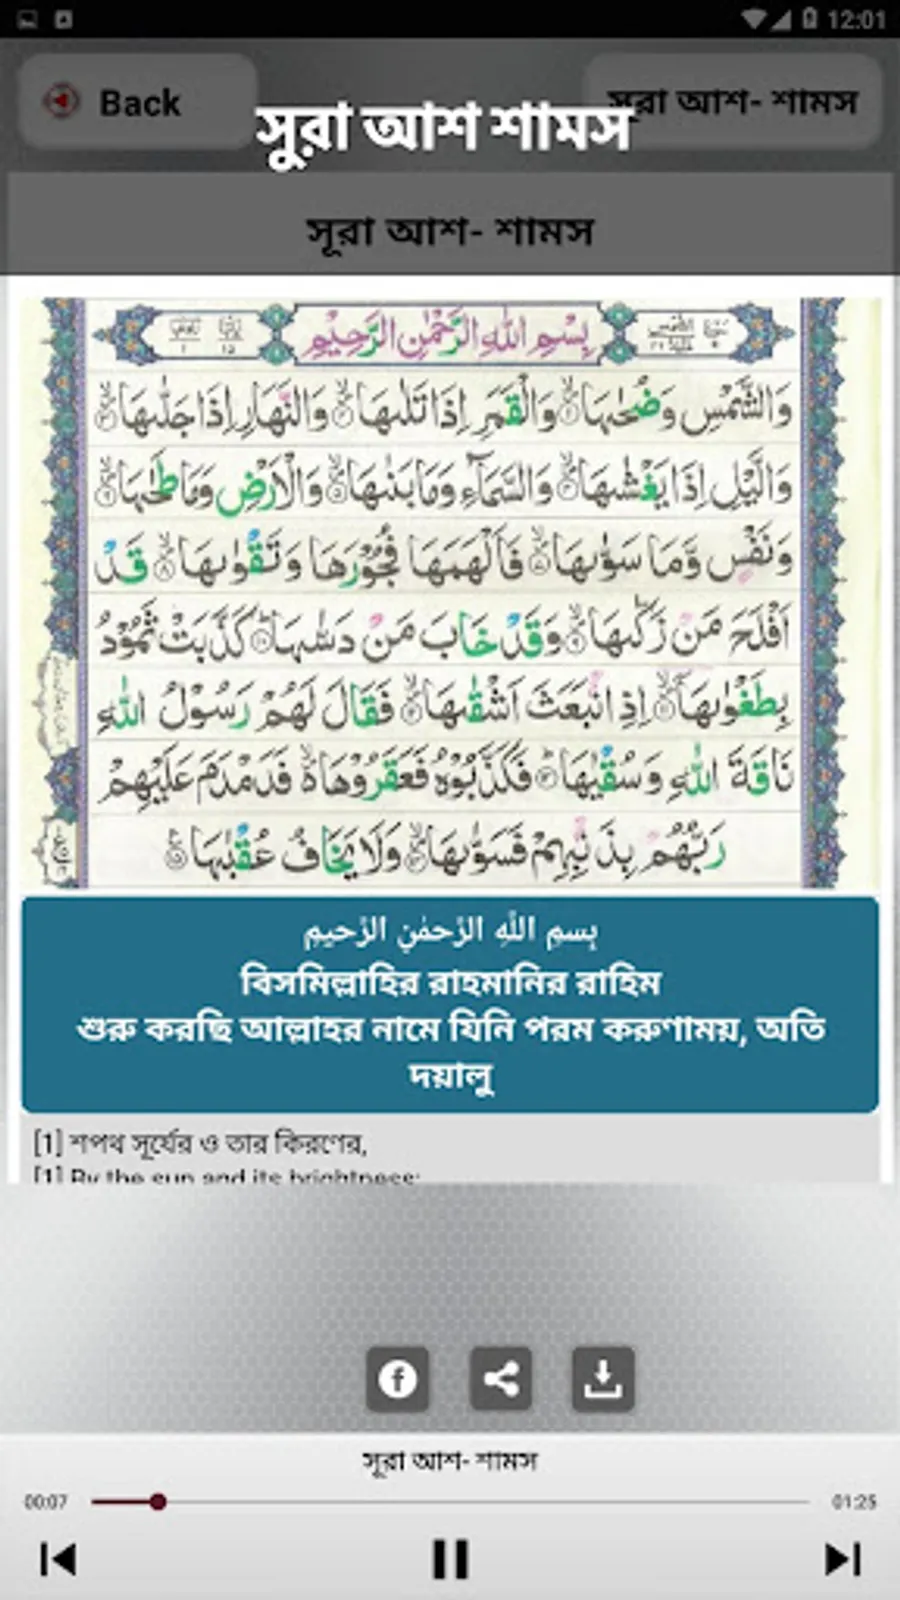 12:01
Back
সূরা আশ- শামস
সুরা আশ শামস
সূরা আশ- শামস
بِسْمِ اللهِ الرَّحْمٰنِ الرَّحِيْمِ
وَالشَّمْسِ وَضُحٰىهَا ۙ وَالْقَمَرِ اِذَا تَلٰىهَا ۙ وَالنَّهَارِ اِذَا جَلّٰىهَا ۙ
وَالَّيْلِ اِذَا يَغْشٰىهَا ۙ وَالسَّمَآءِ وَمَا بَنٰىهَا ۙ وَالْاَرْضِ وَمَا طَحٰىهَا ۙ
وَنَفْسٍ وَّمَا سَوّٰىهَا ۙ فَاَلْهَمَهَا فُجُوْرَهَا وَتَقْوٰىهَا ۙ قَدْ
اَفْلَحَ مَنْ زَكّٰىهَا ۙ وَقَدْ خَابَ مَنْ دَسّٰىهَا ؕ كَذَّبَتْ ثَمُوْدُ
بِطَغْوٰىهَاۤ ۙ اِذِ انْۢبَعَثَ اَشْقٰىهَا ۙ فَقَالَ لَهُمْ رَسُوْلُ اللهِ
نَاقَةَ اللهِ وَسُقْيٰهَا ؕ فَكَذَّبُوْهُ فَعَقَرُوْهَا ۙ فَدَمْدَمَ عَلَيْهِمْ
رَبُّهُمْ بِذَنْۢبِهِمْ فَسَوّٰىهَا ۙ وَلَا يَخَافُ عُقْبٰهَا
بِسمِ اللَّهِ الرَّحمٰنِ الرَّحيمِ
বিসমিল্লাহির রাহমানির রাহিম
শুরু করছি আল্লাহর নামে যিনি পরম করুণাময়, অতি
দয়ালু
[1] শপথ সূর্যের ও তার কিরণের,
[1] By the sun and its brightness;
সূরা আশ- শামস
00:07
01:25